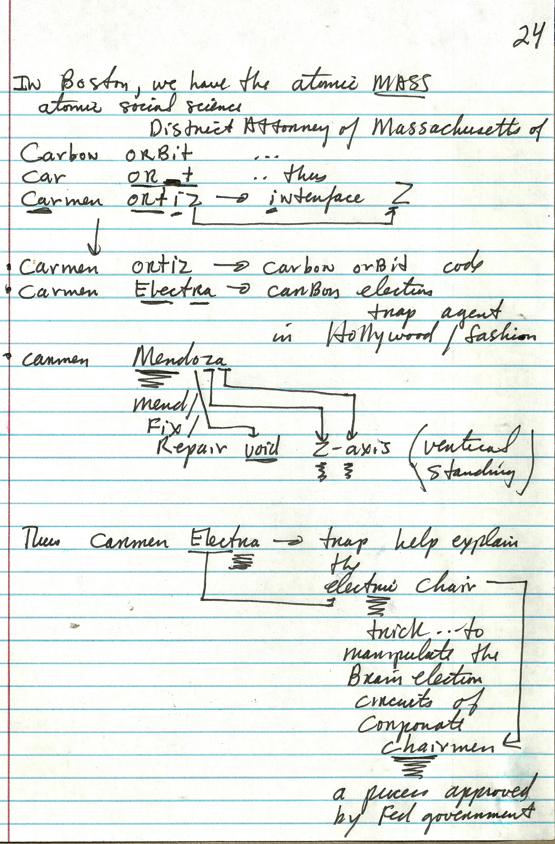 24
In Boston, we have the atomic MASS
atomic social science
District Attorney of Massachusetts of
Carbon orBit ...
Car OR_t .. thus
Carmen ORtiz → interface Z
Carmen ortiz → carbon orBit code
Carmen Electra → carBon electron
trap agent
in Hollywood / fashion
carmen Mendoza
mend/
Fix/
Repair void Z-axis (vertical
standing)
Thus Carmen Electra → trap help explain
the
electric chair
trick ... to
manipulate the
Brain electron
circuits of
Corporate
chairmen
a process approved
by Fed government